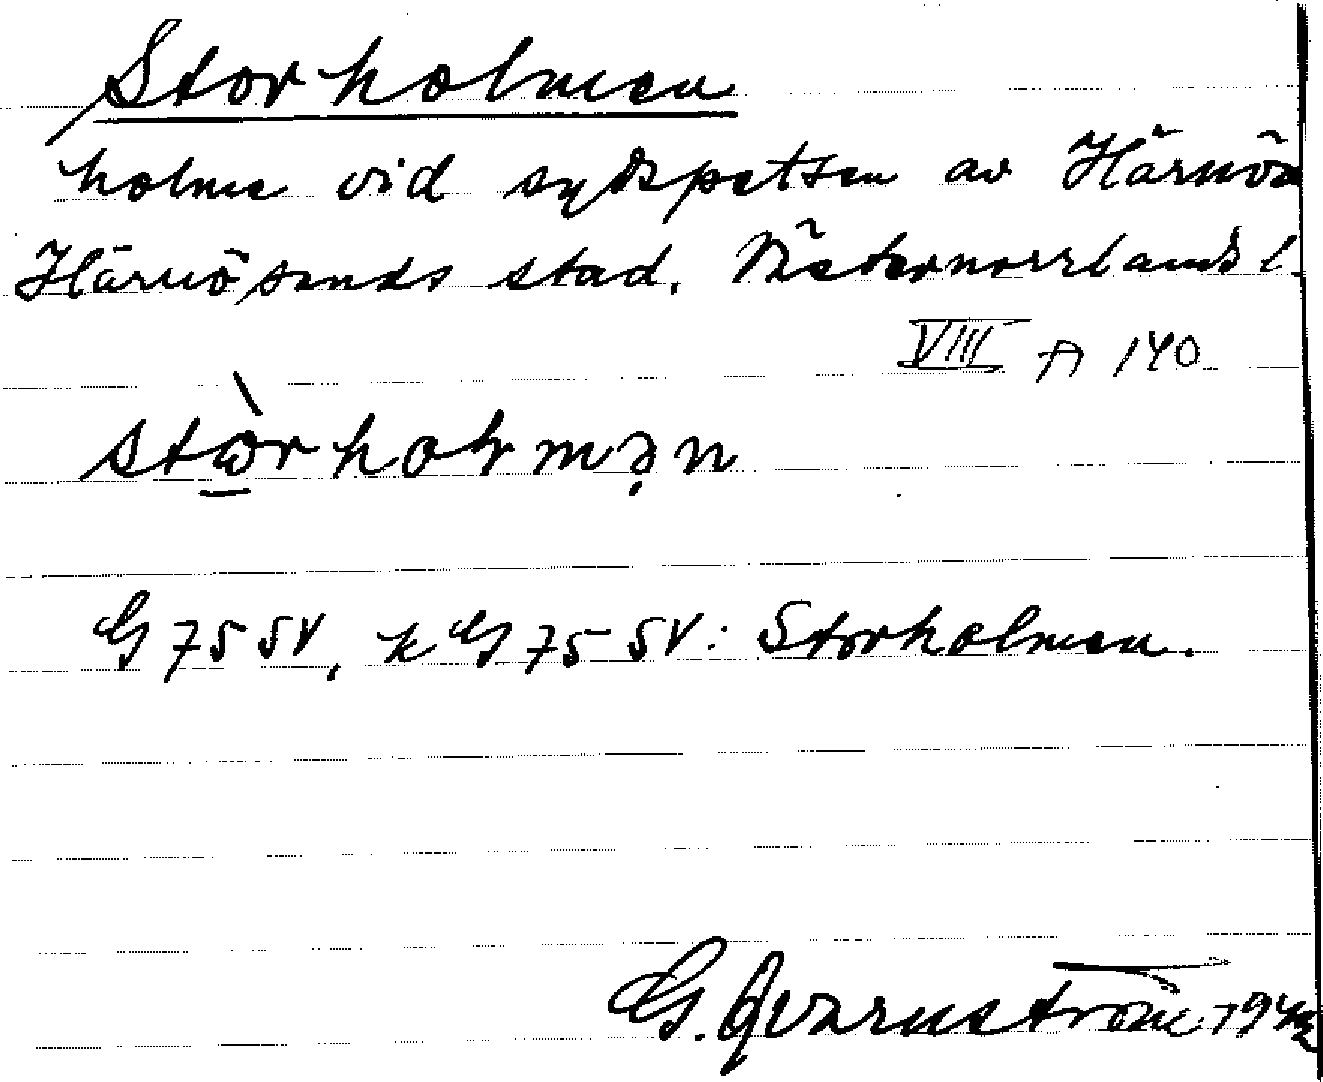 Storholmen
holme vid sydspetsen av Härnön
Härnösands stad. Västernorrlands l.
VIII A 140
stὼ̱rholmən
G 75 SV, k G 75 SV: Storholmen.
G. Qvarnström